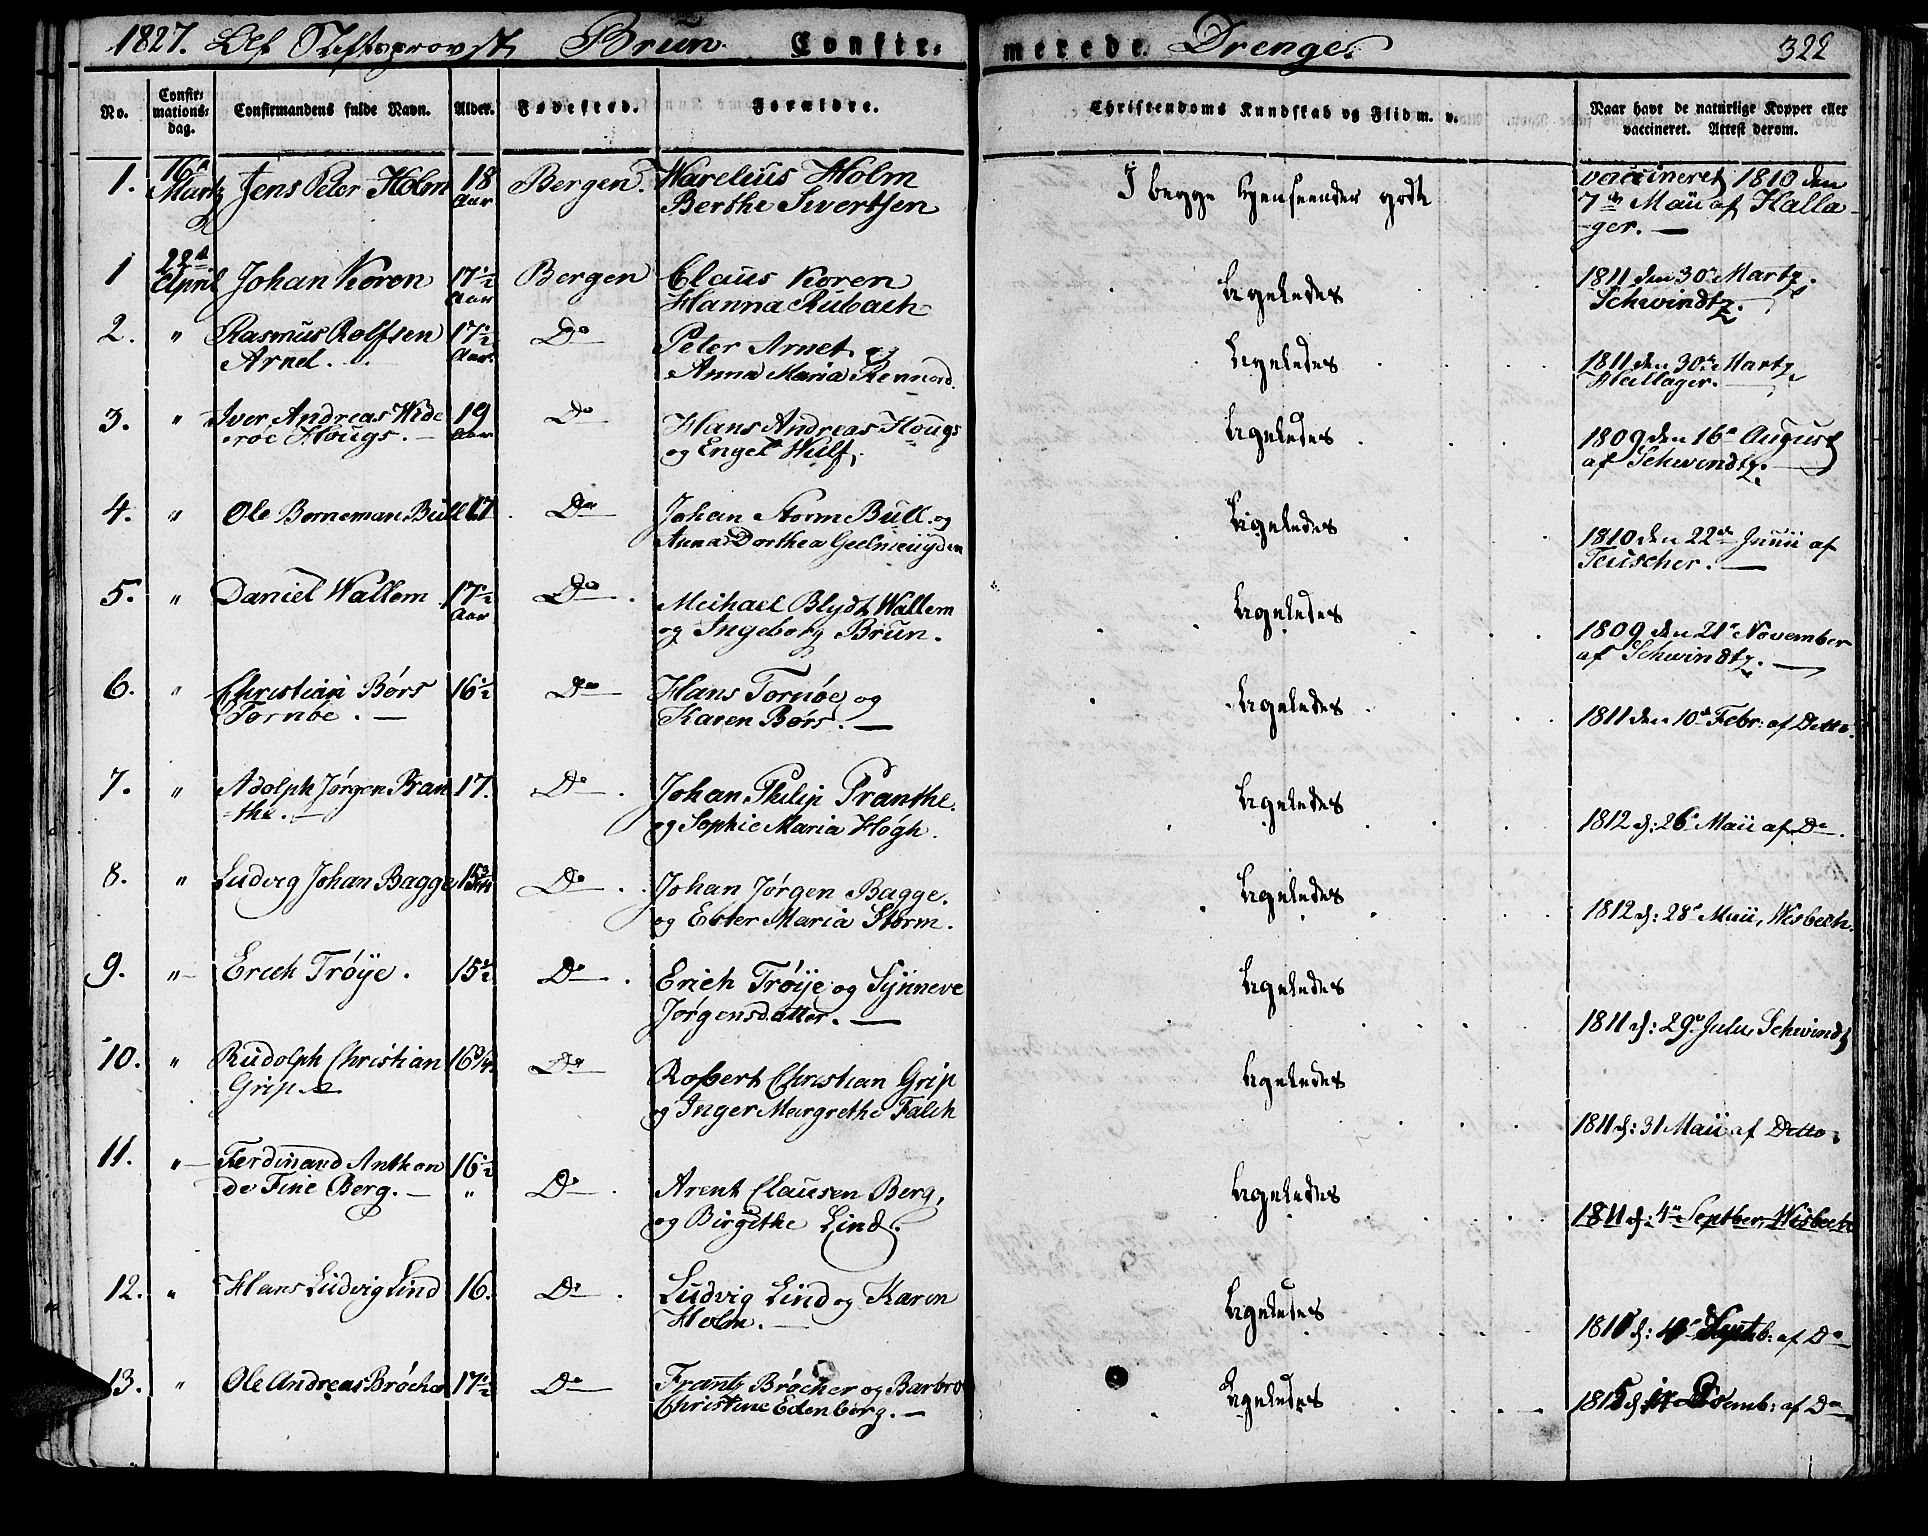 1827. Af Stiftsprovst Brun Confir-
merede Drenge.
322
No.
Confir-
mations-
dag.
Confirmandens fulde Navn.
Alder.
Fødested.
Forældre.
Christendoms Kundskab og Flid m. v.
Naar havt de naturlige Kopper eller
vaccineret. Attest derom.
1. 16de Martz Jens Peter Holm 18 Aar Bergen. Warelius Holm
Berthe Sivertsen
I begge Henseender godt
vaccineret 1810 den
7de Maii af Halla-
ger. —
1 22de April Johan Koren 17½ Aar Bergen Claus Koren
Hanna Rubach
Ligeledes
1811 den 30te Martz.
Schwindtz.
2. " Rasmus Rolfsen 17½ Aar. Do Peter Arnet og
Arnet. Anna Maria Rennord.
Ligeledes
1811 den 30te Martz
Hallager.
3. " Iver Andreas Wide 19 Aar Do Hans Andreas Hougs
røe Hougs. — og Engel Wulf.
Ligeledes
1809 den 16de August
af Schwindtz.
4. " Ole Borneman Bull 17. Do Johan Storm Bull. og
Anna Dorthea Geelmeuyden
Ligeledes
1810 den 22de Junii af
Teuscher. —
5. " Daniel Wallem 17½ Aar Do Michael Blydt Wallem
og Ingeborg Brun.
Ligeledes
1809 den 21de November
af Schwindtz. —
6. " Christian Børs 16½ Do Hans Tornøe og
Tornøe. — Karen Børs. —
Ligeledes
1811 den 10de Febr: af Ditto.
7. " Adolph Jørgen Pran 17. Do Johan Philip Pranthe.
-the. — og Sophie Maria Høgh.
Ligeledes
1812 d: 26de Maii af Do.
8. " Ludvig Johan Bagge 15¾ Do Johan Jørgen Bagge.
og Ester Maria Storm.
Ligeledes
1812 d: 28de Maii, Wisbech.
9. " Erich Trøye. 15½ Do Erich Trøye og Synneve
Jørgensdatter. —
Ligeledes
1811 d: 29de Julii, Schwindtz
10. " Rudolph Christian 16¾ Do Robert Christian Grip
Grip og Inger Margrethe Falch
Ligeledes
1811 d: 31 Maii af Ditto.
11. " Ferdinand Anthon 16½ Do Arent Clausen Berg,
de Fine Berg. — og Birgithe Lind.
Ligeledes
1811 d: 4de Septber, Wisbech
12. " Hans Ludvig Lind 16. Do Ludvig Lind og Karen
Holm. —
Ligeledes
Septb: af Do
13. " Ole Andreas Brøcher 17½ Do Frantz Brøcher og Barbro
Christine Edenborg. —
Ligeledes
af Do